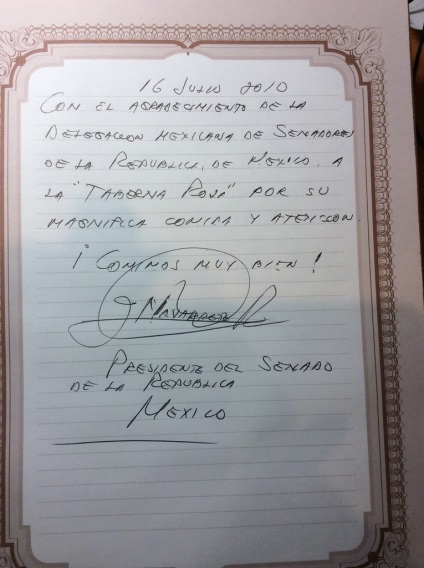 16 Julio 2010
CON EL AGRADECIMIENTO DE LA
DELEGACION MEXICANA DE SENADORES
DE LA REPUBLICA, DE MEXICO, A
LA "TABERNA ROJA" POR SU
MAGNIFICA COMIDA Y ATENCION.
¡ COMIMOS MUY BIEN !
NAVARRETE R
PRESIDENTE DEL SENADO
DE LA REPUBLICA
MEXICO